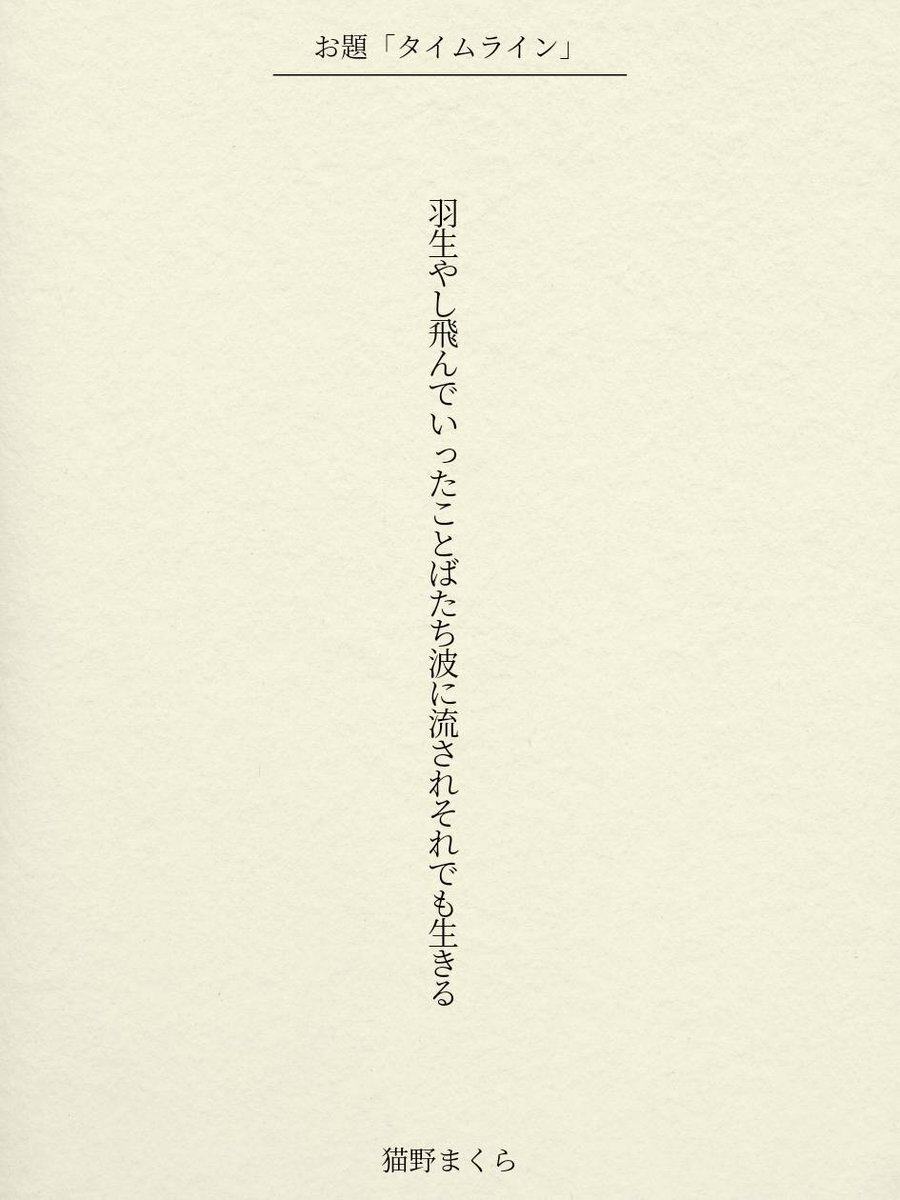 お題「タイムライン」
羽生やし飛んでいったことばたち波に流されそれでも生きる
猫野まくら